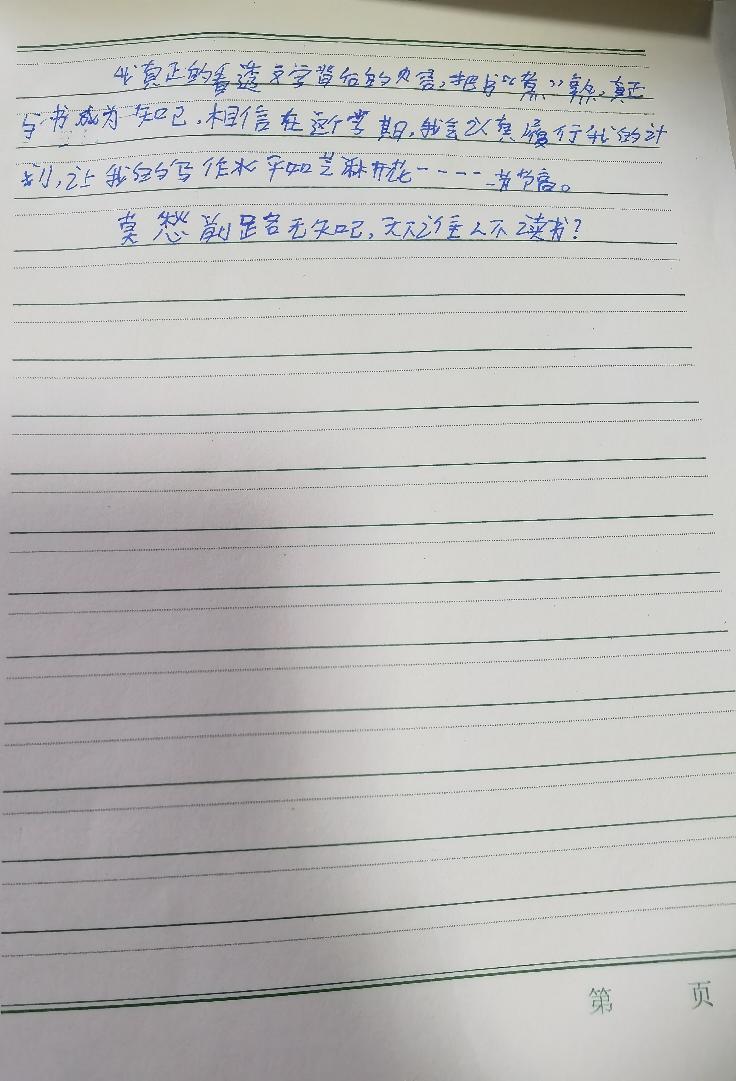 真正的看透文字背后的内容,把书“蒸”熟,真正
与书成为知己,相信在这个学期,我会认真履行我的计
划,让我的写作水平如芝麻开花----节节高。
莫愁前路无知己,天下谁人不读书?
第 页